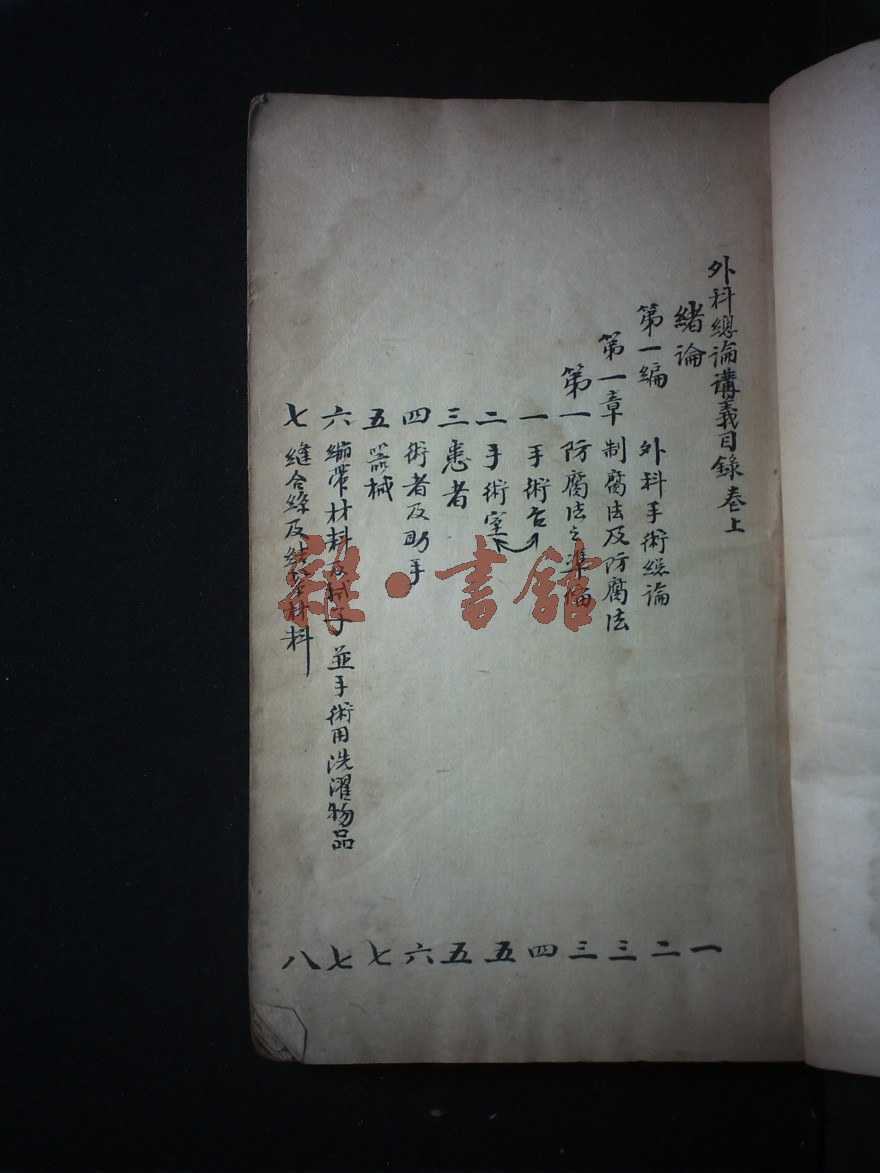 外科總論講義目錄卷上
緒論 一
第一編 外科手術總論 二
第一章 制腐法及防腐法 三
第一 防腐法之準備 三
一 手術台 四
二 手術室 五
三 患者 五
四 術者及助手 六
五 器械 七
六 繃帶材料及 並手術用洗濯物品 七
七 縫合絲及結紮材料 八
雜·書館